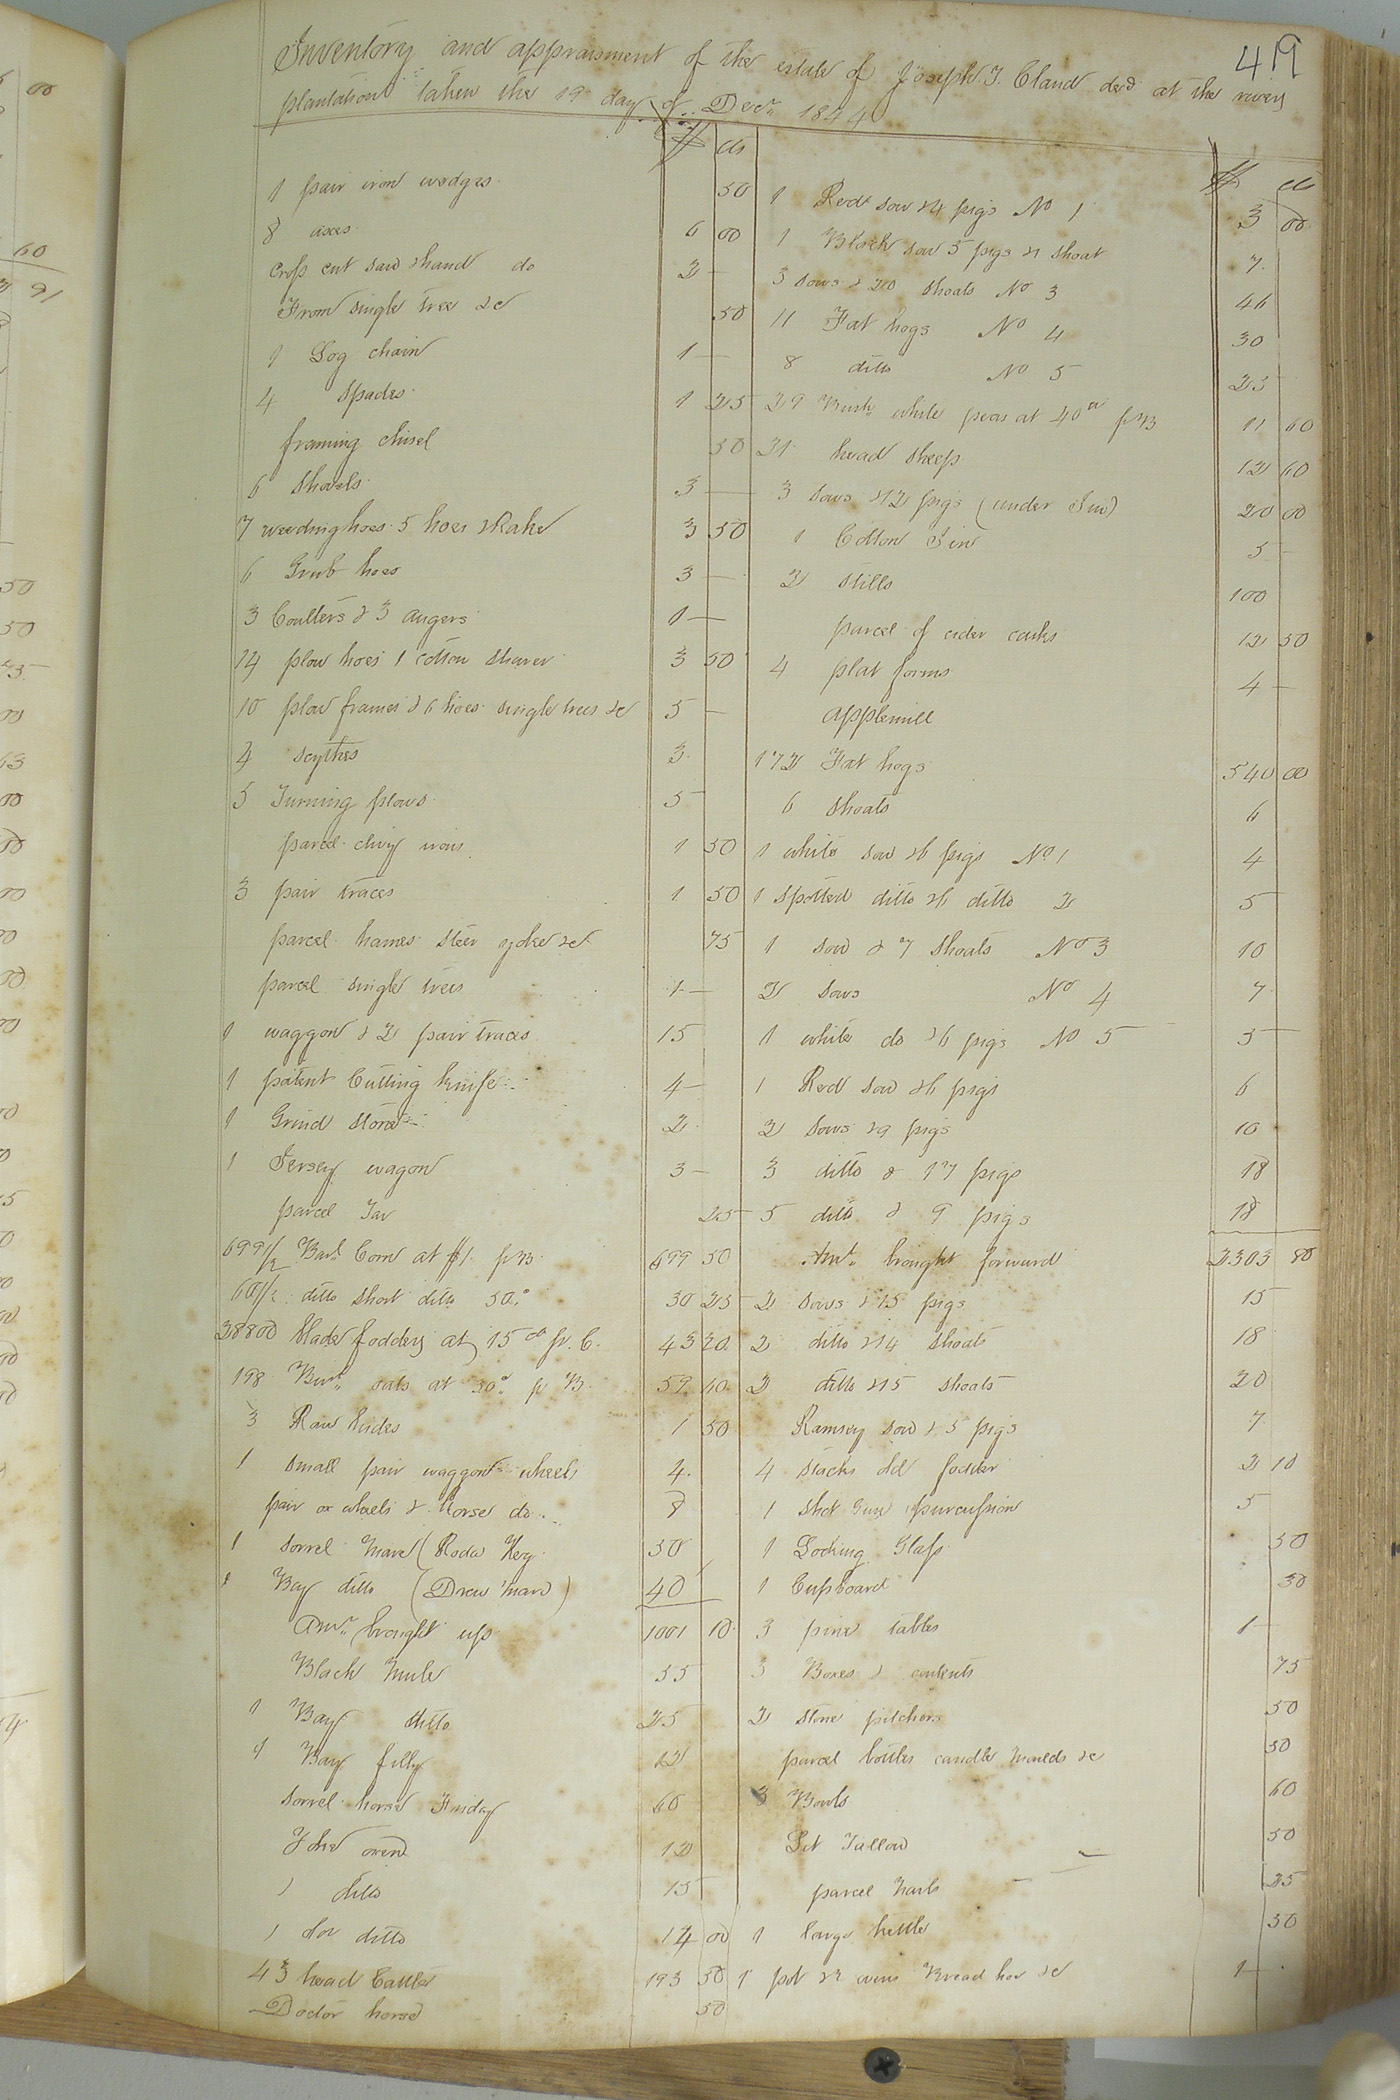 419
Inventory and appraisment of the estate of Joseph J. Cland decd at the river
plantation taken the 19 day of Decr 1844
$ cts
1 pair iron wedges 50
8 axes 6 00
Cross cut saw & hand do 2 —
Iron single tree &c 50
1 Log chain 1 —
4 Spades 1 25
framing chisel 50
6 Shovels 3 —
7 weeding hoes 5 hoes & Rake 3 50
6 Grub hoes 3 —
3 Coulters & 3 augers 1 —
14 plow hoes 1 cotton Shaver 3 50
10 plow frames & 6 hoes single trees &c 5 —
4 Scythes 3
5 Turning plows 5
parcel clivy irons 1 50
3 pair traces 1 50
parcel hames steer yoke &c 75
parcel single trees 1 —
1 waggon & 2 pair traces 15
1 patent Cutting knife 4 —
1 Grind stone 2
1 Jersey wagon 3 —
parcel Tar 25
699 1/2 Bus Corn at $1. pr B. 699 50
60 1/2 ditto short ditto 50c 30 25
28800 blade fodder at 15 cts pr. C. 43 20
198 Bush oats at 30c pr B. 59 40
3 Raw hides 1 50
1 small pair waggon wheels 4
pair ox wheels & horse do 8
1 Sorrel mare (Roda Key 30
1 Bay ditto (Drew mare) 40
Amt. brought up 1001 10
Black mule 55
1 Bay ditto 25
1 Bay filly 22
Sorrel horse Friday 60
Yoke oxen 12
1 ditto 15
1 do ditto 14 00
43 head Cattle 193 50
Doctor horse 50
$ cts
1 Red sow & 4 pigs No 1 3 00
1 Black sow 5 pigs & 1 shoat 7
3 sows & 20 shoats No 3 46
11 Fat hogs No 4 30
8 ditto No 5 25
29 Bush white peas at 40 cts pr B 11 60
21 head sheep 12 60
3 sows & 12 pigs (under Gin) 20 00
1 Cotton Gin 5 —
2 stills 100
parcel of cider casks 12 50
4 plat forms 4 —
applemill
172 Fat hogs 540 00
6 shoats 6
1 white sow & 6 pigs No 1 4
1 spotted ditto & 6 ditto 2 5
1 sow & 7 shoats No 3 10
2 sows No 4 7
1 white do & 6 pigs No 5 5
1 Red sow & 6 pigs 6
2 sows & 9 pigs 10
3 ditto & 17 pigs 18
5 ditto & 9 pigs 18
Amt. brought forward 2303 80
2 sows & 15 pigs 15
2 ditto & 14 shoats 18
2 ditto & 15 shoats 20
Ramsey sow & 5 pigs 7
4 stacks old fodder 2 10
1 shot Gun percussion 5
1 Looking Glass 50
1 Cupboard 30
3 pine tables 1 —
3 Boxes & contents 75
2 stone pitchers 50
parcel bottles candle moulds &c 50
3 Bowls 60
Lot Tallow 50
parcel 25
1 large kettle 50
1 pot & 2 ovens Bread hoe &c 1 —